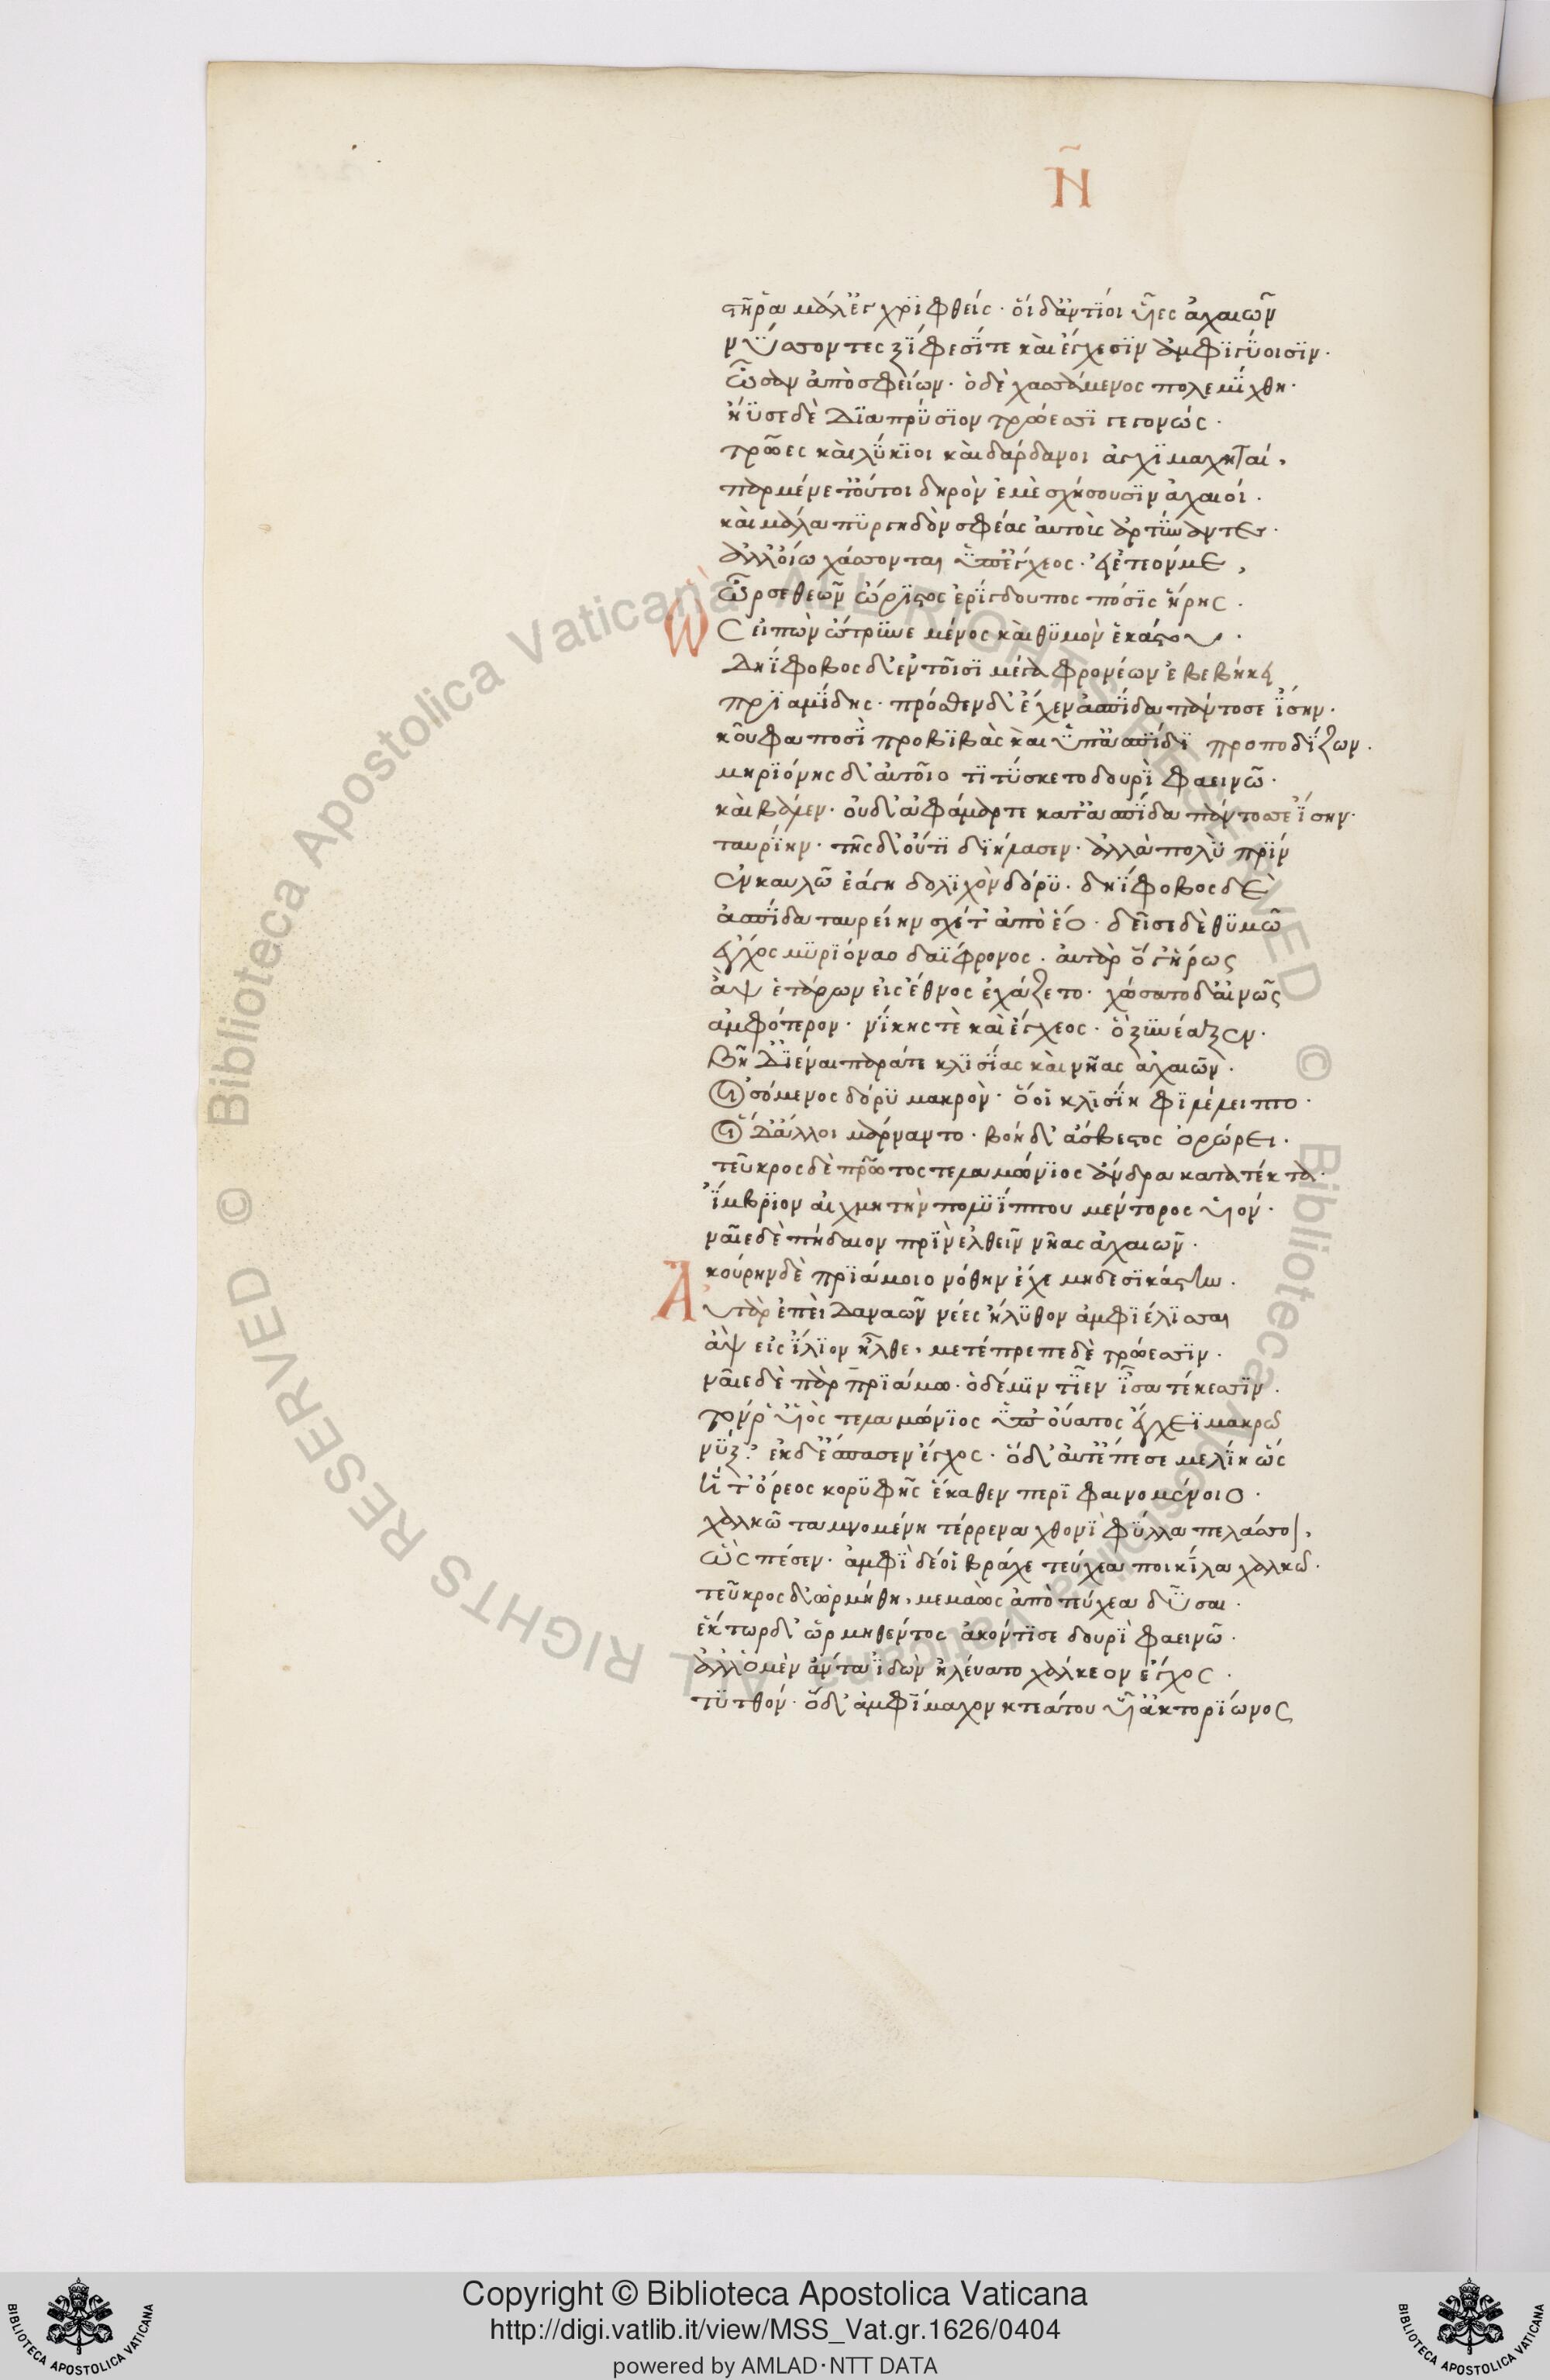 Ν̃
στῆ ῥα μάλ' ἐγχριφθείς· οἱ δ' ἀντίοι υἷες ἀχαιῶν
νύσσοντες ξίφεσίν τε καὶ ἔγχεσιν ἀμφιγύοισιν·
ὦσαν ἀπὸ σφείων· ὁ δὲ χασσάμενος πολεμίχθη·
ἤϋσε δὲ διαπρύσιον τρώεσσι γεγονώς·
τρῶες καὶ λύκιοι καὶ δάρδανοι ἀγχιμαχηταί,
παρμένετ' οὔτοι δηρὸν ἐμὲ σχήσουσιν ἀχαιοί.
καὶ μάλα πυργηδὸν σφέας αὐτοὺς ἀρτύναντες·
ἀλλ' οἴω χάσσονται ὑπ' ἔγχεος· εἰ ἐτεόν με,
ὦρσε θεῶν ὤριστος ἐρίγδουπος πόσις ἥρης.
Ὣς εἰπὼν ὤτρυνε μένος καὶ θυμὸν ἑκάστου.
δηΐφοβος δ' ἐν τοῖσι μέγα φρονέων ἐβεβήκει
πριαμίδης· πρόσθεν δ' ἔχεν ἀσπίδα πάντοσε ἴσην·
κοῦφα ποσὶ προβιβὰς καὶ ὑπασπίδι προποδίζων.
μηριόνης δ' αὐτοῖο τιτύσκετο δουρὶ φαεινῶ·
καὶ βάλεν· οὐδ' ἀφάμαρτε κατ' ἀσπίδα πάντοσε ἴσην·
ταυρίην· τῆς δ' οὔτι διήλασεν· ἀλλὰ πολὺ πρὶν
ἐν καυλῶ ἐάγη δολιχὸν δόρυ· δηΐφοβος δὲ
ἀσπίδα ταυρείην σχέτ' ἀπὸ ἕο· δεῖσε δὲ θυμῶ
ἔγχος μυριόναο δαΐφρονος· αὐτὰρ ὅγ' ἥρως
ἂψ ἑτάρων εἰς ἔθνος ἐχάζετο· χώσατο δ' αἰνῶς
ἀμφότερον· νίκης τε καὶ ἔγχεος· ὃ ξυνέαξεν·
βῆ δ' ἰέναι παρά τε κλισίας καὶ νῆας ἀχαιῶν·
οἰσόμενος δόρυ μακρὸν· ὅ οἱ κλισίηφι λέλειπτο·
οἱ δ' ἄλλοι μάρναντο· βοὴ δ' ἄσβεστος ὀρώρει·
τεῦκρος δὲ πρῶτος τελαμώνιος ἄνδρα κατέκτα·
ἴμβριον αἰχμητὴν πολυΐππου μέντορος υἱόν·
ναῖε δὲ πήδαιον πρὶν ἐλθεῖν υἷας ἀχαιῶν·
κούρην δὲ πριάμοιο νόθην ἔχε μηδεσικάστην.
Αὐτὰρ ἐπεὶ δαναῶν νέες ἤλυθον ἀμφιέλισσαι
ἂψ εἰς ἴλιον ἦλθε, μετέπρεπε δὲ τρώεσσιν·
ναῖε δὲ πὰρ πριάμω· ὁ δέ μιν τῖεν ἶσα τέκεσσιν.
τόν ῥ' υἱὸς τελαμώνιος ὑπ' οὔατος ἔγχεϊ μακρῶ
νύξ'· ἐκ δ' ἔσπασεν ἔγχος· ὁ δ' αὖτ' ἔπεσε μελίη ὣς
ἥ τ' ὄρεος κορυφῆς ἕκαθεν περιφαινομένοιο·
χαλκῶ ταμνομένη τέρρενα χθονὶ φύλλα πελάσση,
ὣς πέσεν· ἀμφὶ δέ οἱ βράχε τεύχεα ποικίλα χαλκῶ·
τεῦκρος δ' ὡρμήθη, μεμαὼς ἀπὸ τεύχεα δῦσαι·
ἕκτωρ δ' ὁρμηθέντος ἀκόντισε δουρὶ φαεινῶ·
ἀλλ' ὁ μὲν ἄντα ἰδὼν ἠλεύατο χάλκεον ἔγχος.
τυτθόν· ὁ δ' ἀμφίμαχον κτεάτου υἷ' ἀκτορίωνος
Copyright © Biblioteca Apostolica Vaticana
http://digi.vatlib.it/view/MSS_Vat.gr.1626/0404
powered by AMLAD·NTT DATA
BIBLIOTECA APOSTOLICA VATICANA
BIBLIOTECA APOSTOLICA VATICANA
© Biblioteca Apostolica Vaticana ALL RIGHTS RESERVED © Biblioteca Apostolica Vaticana ALL RIGHTS RESERVED